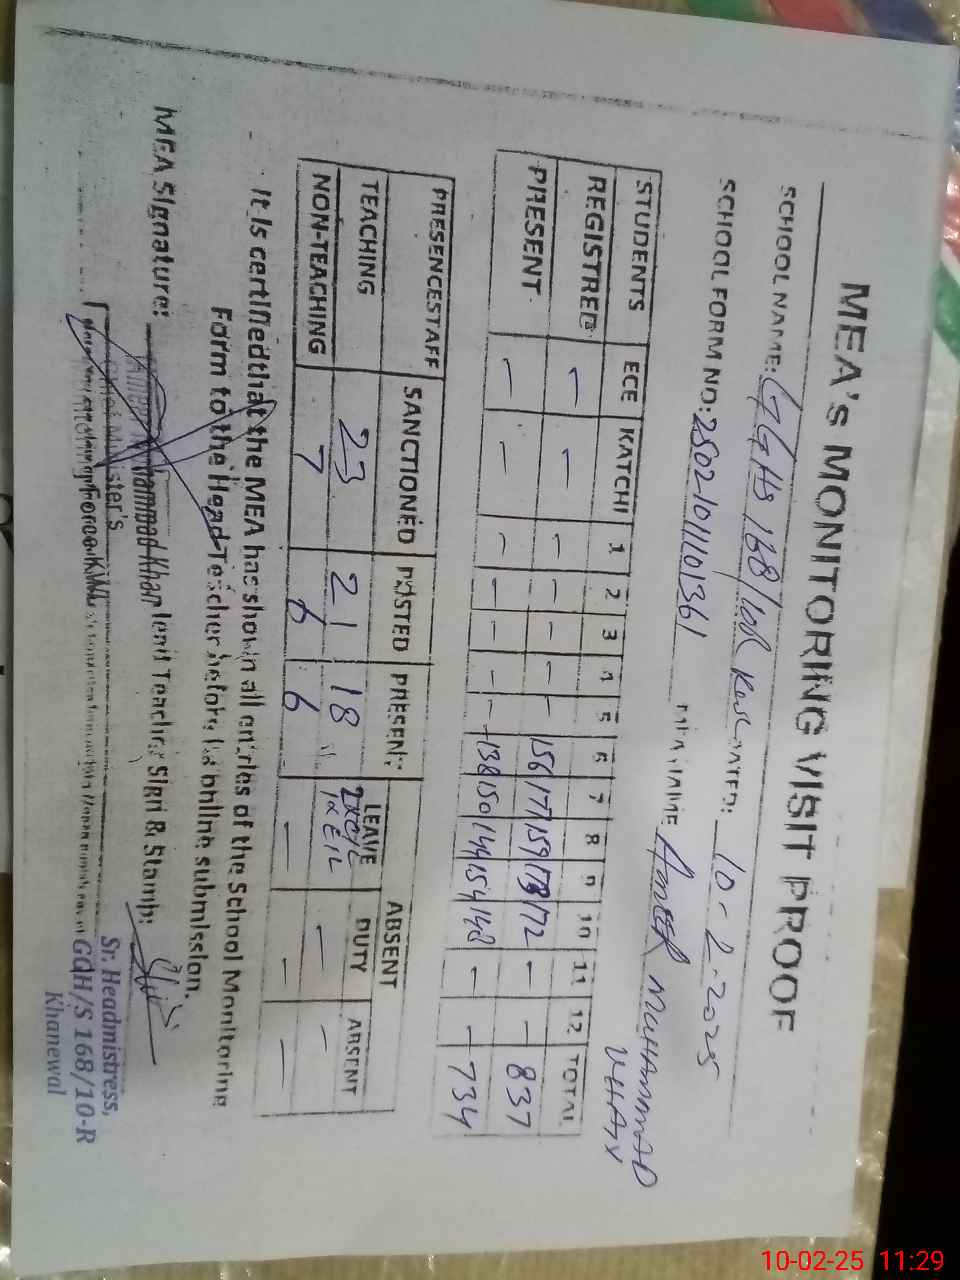 MEA's MONITORING VISIT PROOF
SCHOOL NAME: GGHS 168/10R DATED: 10-2-2025
SCHOOL FORM NO: MEA NAME AMEER MUHAMMAD KHAN
STUDENTS ECE KATCHI 1 2 3 4 5 6 7 8 9 10 11 12 TOTAL
REGISTRED - - - - - - - 156 171 159 172 - - 837
PRESENT - - - - - - - 138 150 144 154 148 - - 734
PRESENCESTAFF SANCTIONED POSTED PRESENT ABSENT
LEAVE DUTY ABSENT
TEACHING 23 21 18 - -
NON-TEACHING 7 6 6 - - -
It is certified that the MEA has shown all entries of the School Monitoring
Form to the Head Teacher before its online submission.
MEA Signature: Head Teacher Sign & Stamp:
Ameer Muhammad Khan
Chief Minister's
Monitoring Force KWL
Sr. Headmistress,
GGH/S 168/10-R
Khanewal
10-02-25 11:29